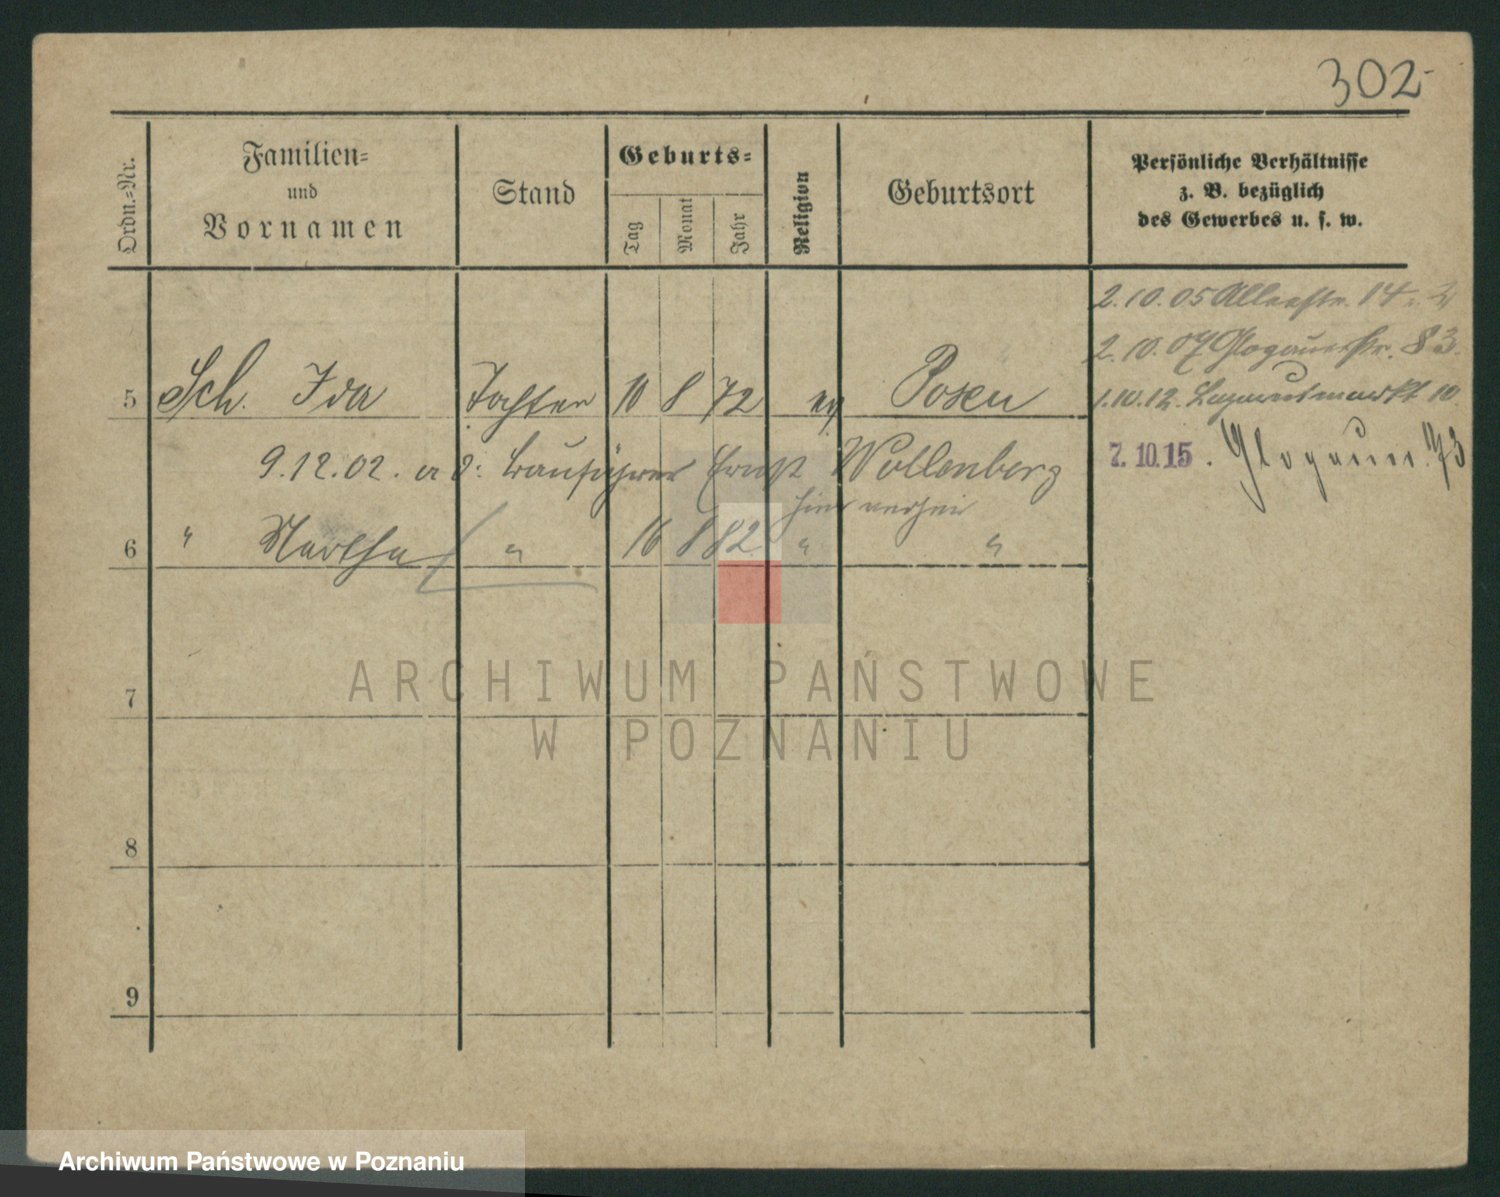 302
Ordn.=Nr.
Familien=
und
Vornamen
Stand
Geburts=
Tag
Monat
Jahr
Religion
Geburtsort
Persönliche Verhältnisse
z. B. bezüglich
des Gewerbes u. s. w.
2.10.05 14
2.10.07 Glogauerstr. 83.
5 Sch. Ida Tochter 10 8 72 ev Posen
1.10.12. 10
9.12.02. a d: Bauführer Ernst Wollenberg
7.10.15.
hier
6 " Martha " 16 8 82 " "
7
ARCHIWUM PAŃSTWOWE
W POZNANIU
8
9
Archiwum Państwowe w Poznaniu